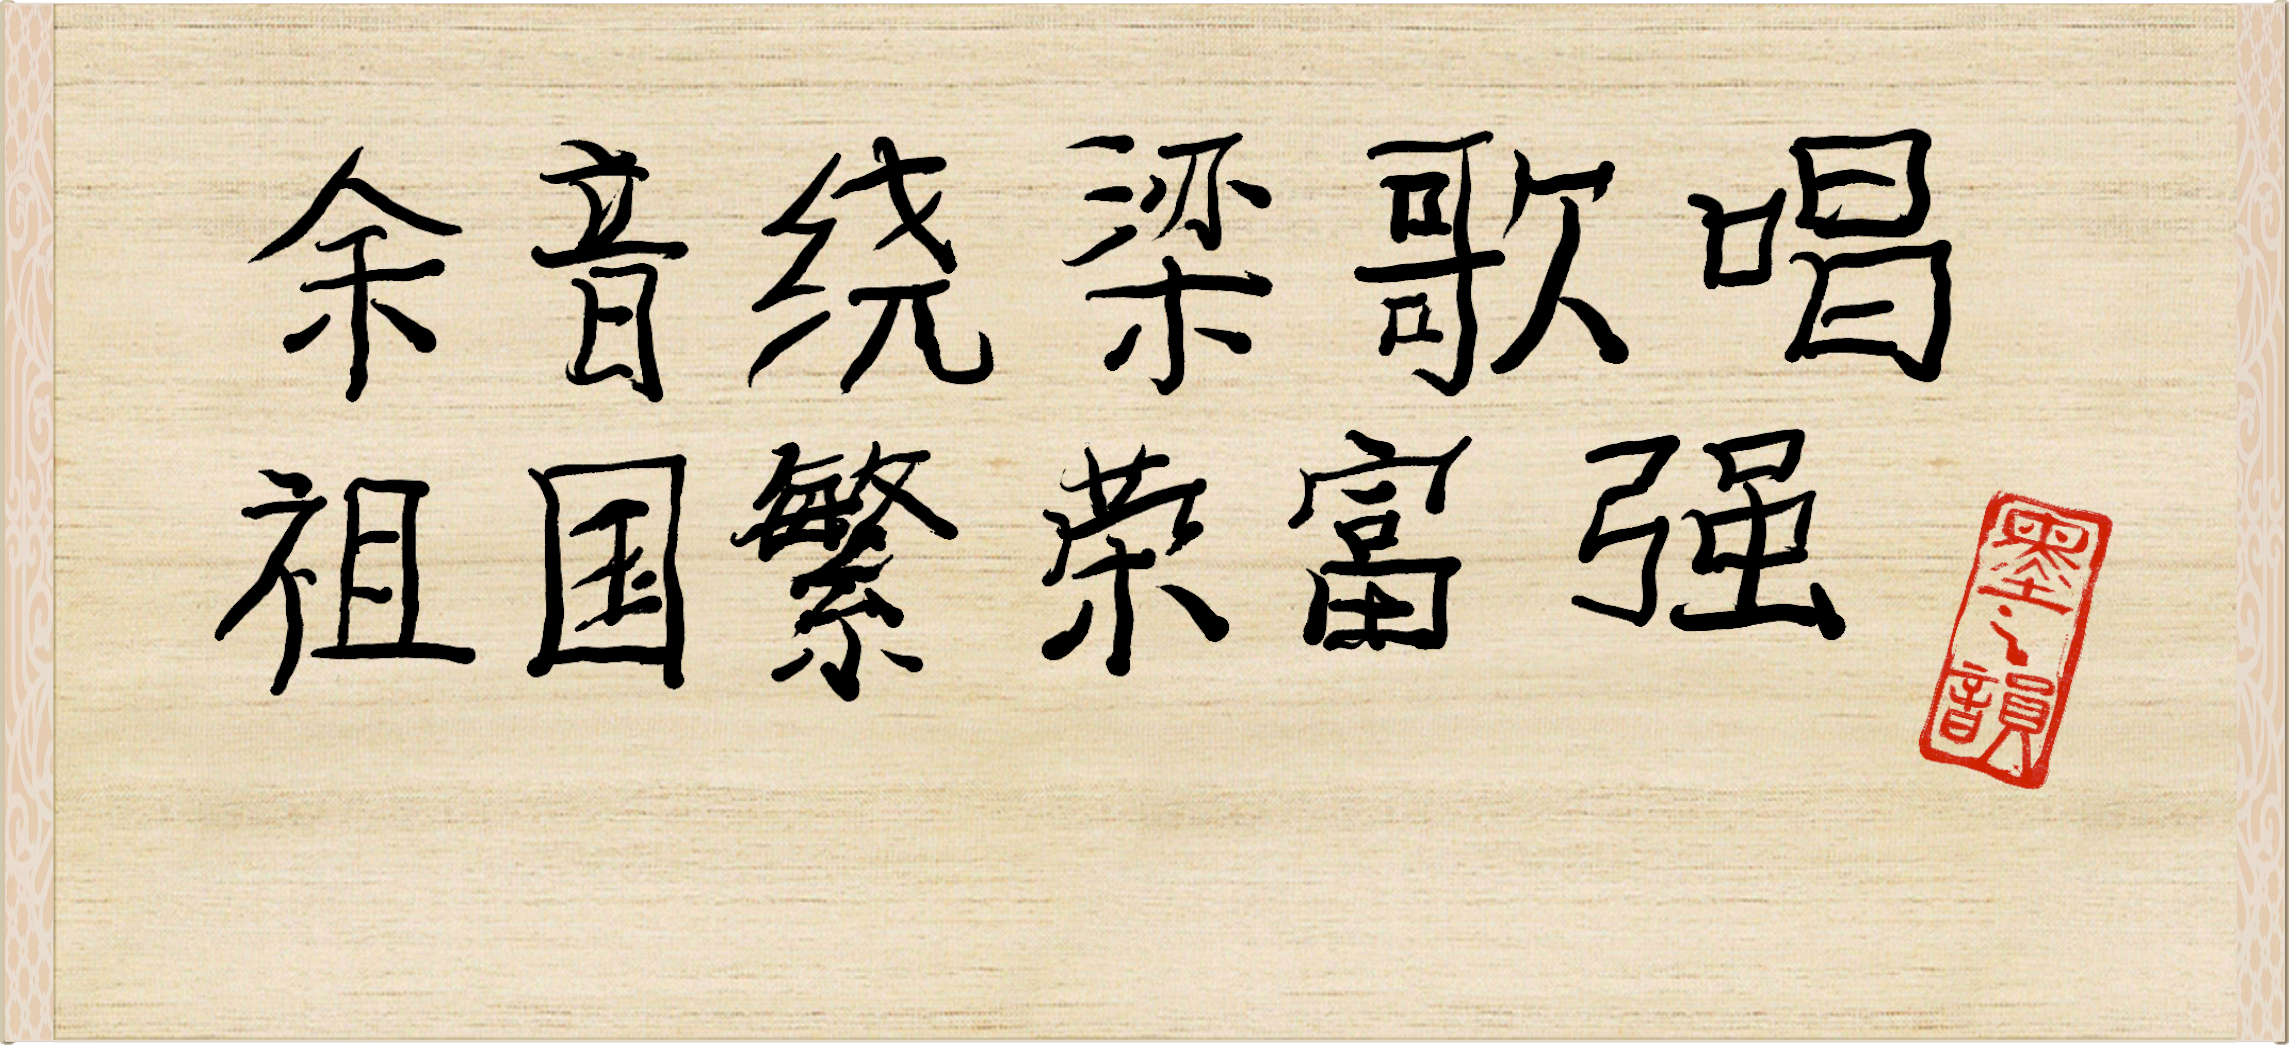 余音绕梁歌唱
祖国繁荣富强
墨之韻